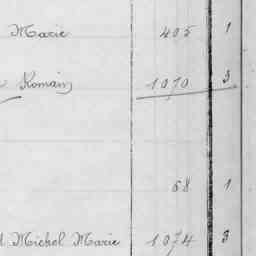 Marie 405 1
Romain 1070 3
68 1
Michel Marie 1074 3